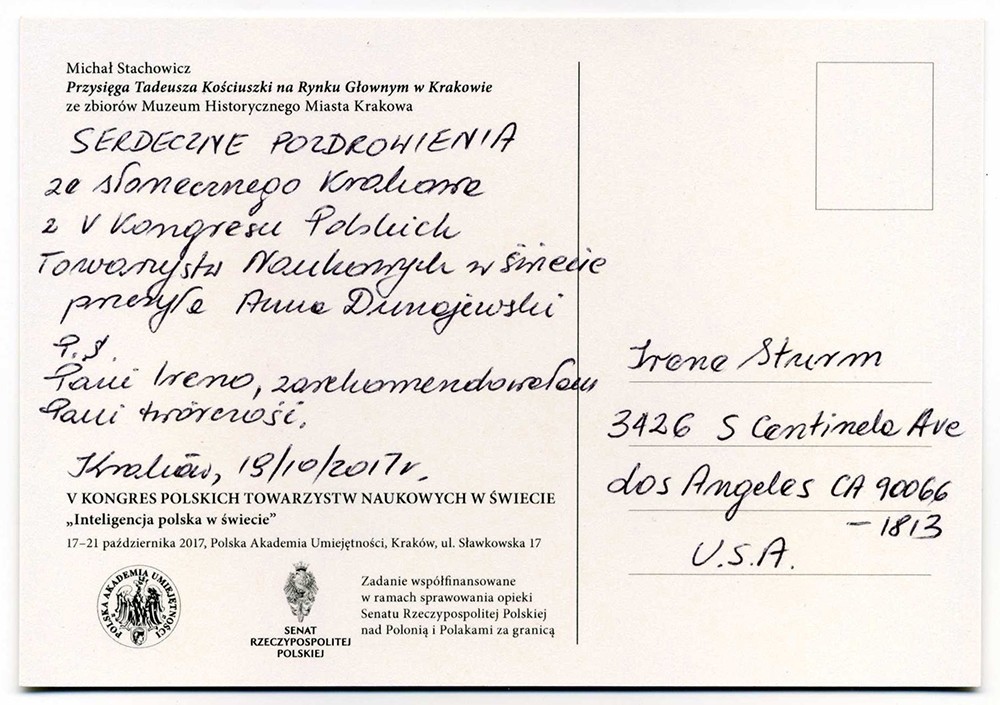 Michał Stachowicz
Przysięga Tadeusza Kościuszki na Rynku Głownym w Krakowie
ze zbiorów Muzeum Historycznego Miasta Krakowa
SERDECZNE POZDROWIENIA
ze słonecznego Krakowa
z V Kongresu Polskich
Towarzystw Naukowych w świecie
przesyła Anna Dunajewski
P.S.
Pani Ireno, zarekomendowałam
Pani twórczość.
Kraków, 19/10/2017r.
V KONGRES POLSKICH TOWARZYSTW NAUKOWYCH W ŚWIECIE
„Inteligencja polska w świecie”
17–21 października 2017, Polska Akademia Umiejętności, Kraków, ul. Sławkowska 17
POLSKA AKADEMIA UMIEJĘTNOŚCI
SENAT
RZECZYPOSPOLITEJ
POLSKIEJ
Zadanie współfinansowane
w ramach sprawowania opieki
Senatu Rzeczypospolitej Polskiej
nad Polonią i Polakami za granicą
Irena Sturm
3426 S Centinela Ave
Los Angeles CA 90066
– 1813
U.S.A.